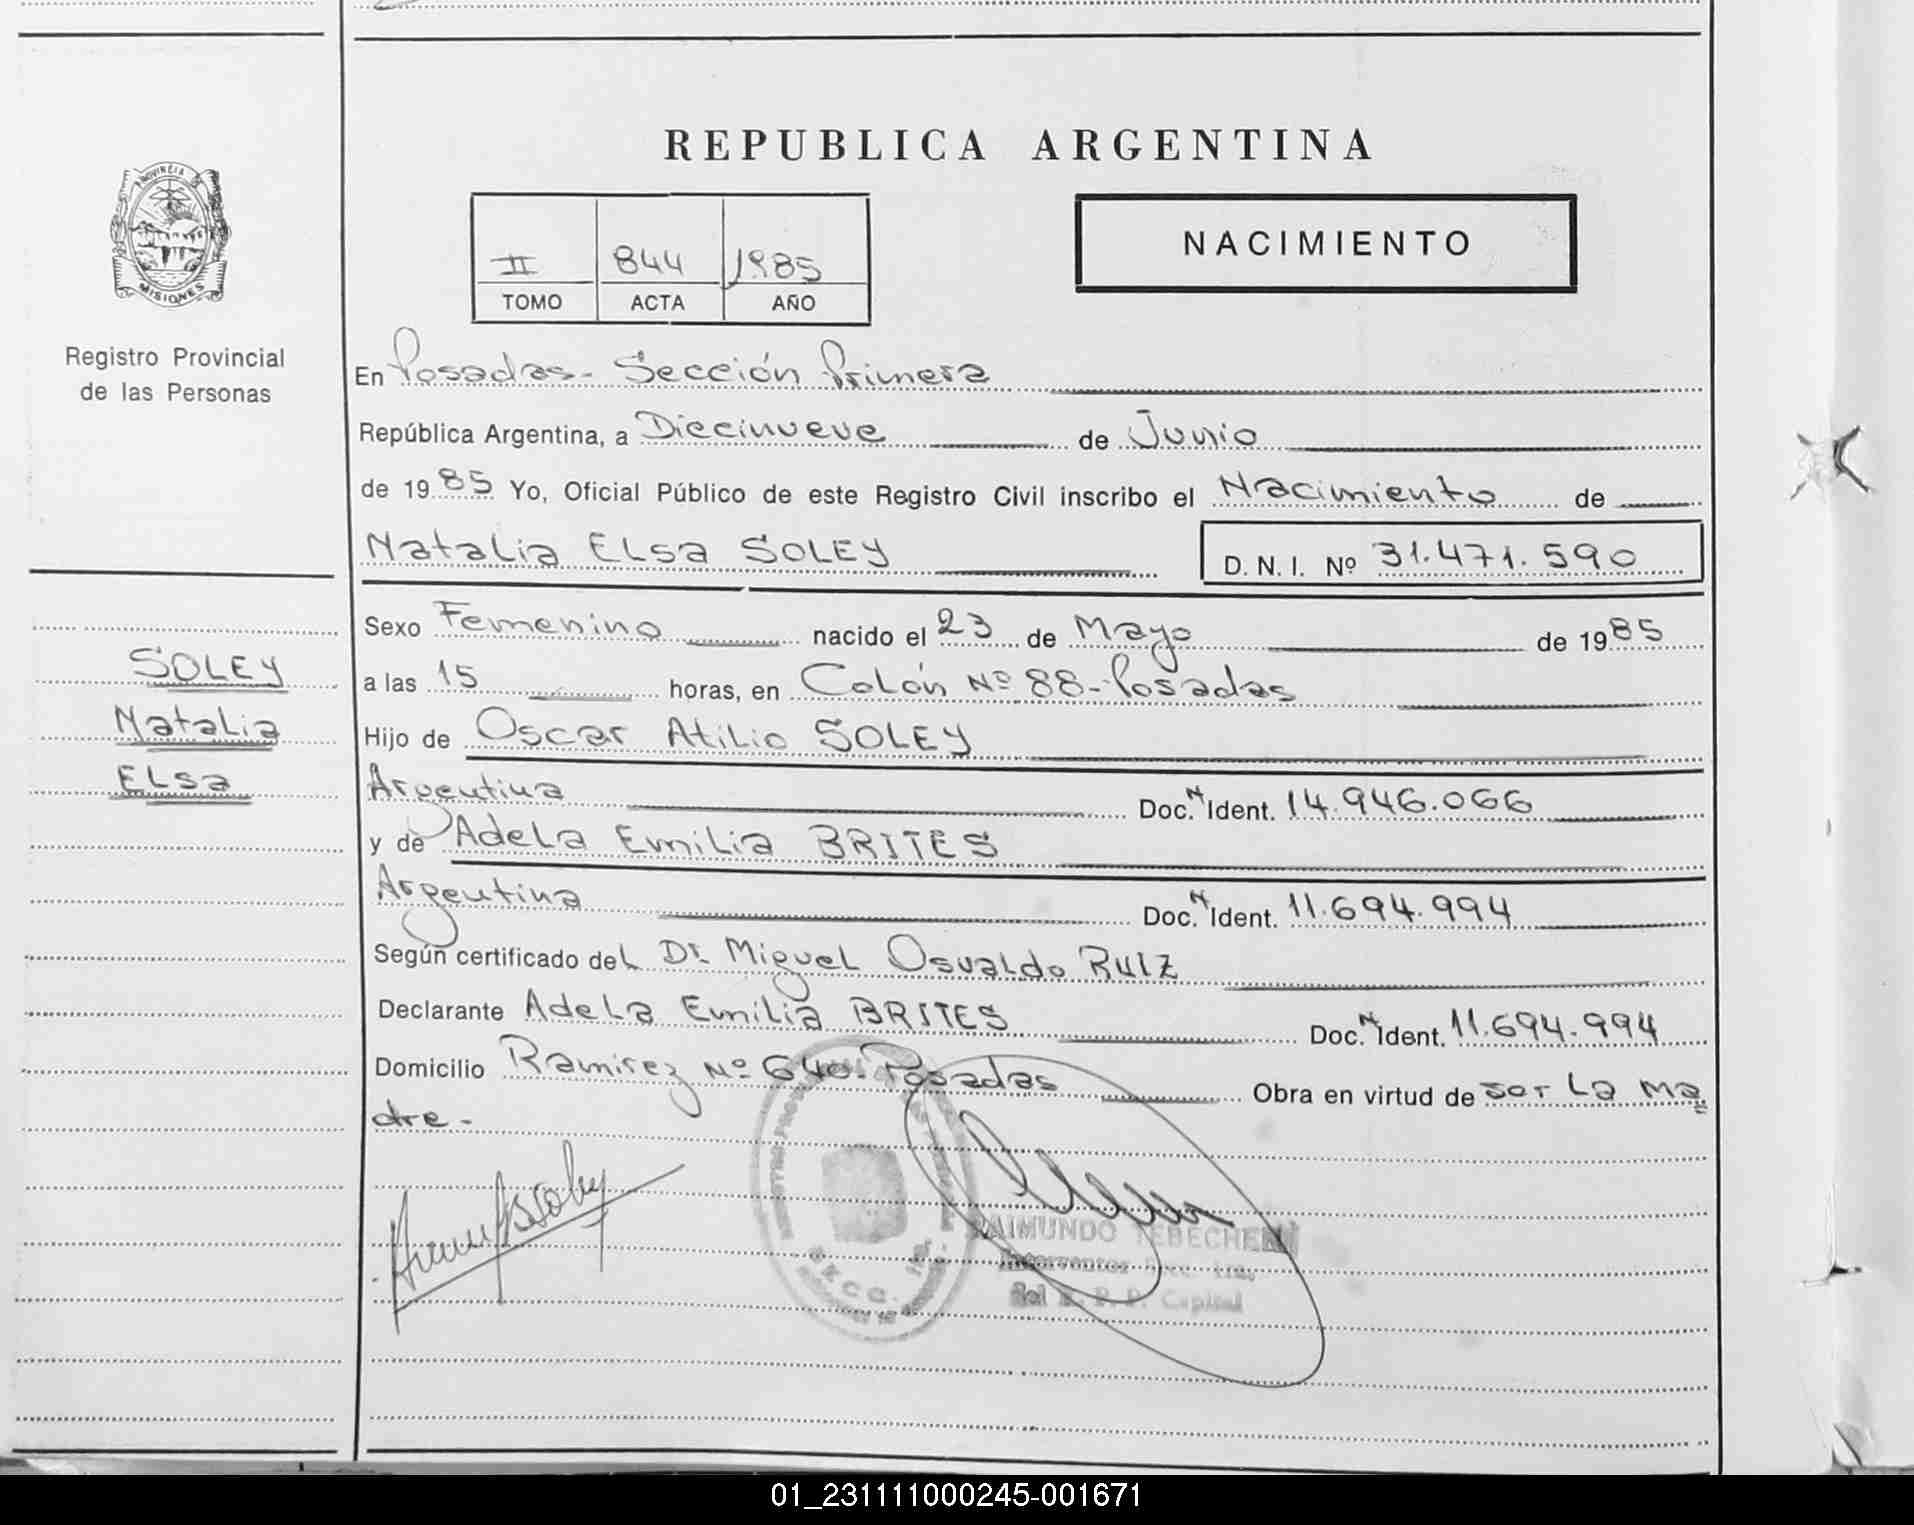 REPUBLICA ARGENTINA
PROVINCIA DE
MISIONES
Registro Provincial
de las Personas
NACIMIENTO
II 844 1985
TOMO ACTA AÑO
En Posadas - Sección Primera
República Argentina, a Diecinueve de Junio
de 1985 Yo, Oficial Público de este Registro Civil inscribo el Nacimiento de
Natalia Elsa SOLEY D. N. I. Nº 31.471.590
Sexo Femenino nacido el 23 de Mayo de 1985
a las 15 horas, en Colón Nº 88 - Posadas
Hijo de Oscar Atilio SOLEY
Argentina Doc. N Ident. 14.946.066
y de Adela Emilia BRITES
Argentina Doc. N Ident. 11.694.994
Según certificado del Dr. Miguel Osvaldo RUIZ
Declarante Adela Emilia BRITES Doc. N Ident. 11.694.994
Domicilio Ramirez Nº 640 - Posadas Obra en virtud de ser La Ma
dre -
SOLEY
Natalia
Elsa
SECC. 1ra.
RAIMUNDO
Interventor Secc. 1ra.
del R. P. P. Capital
01_231111000245-001671